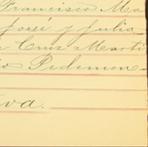 Francisco Ma
José y Julia
Cruz Marti
o Pedemon
va.